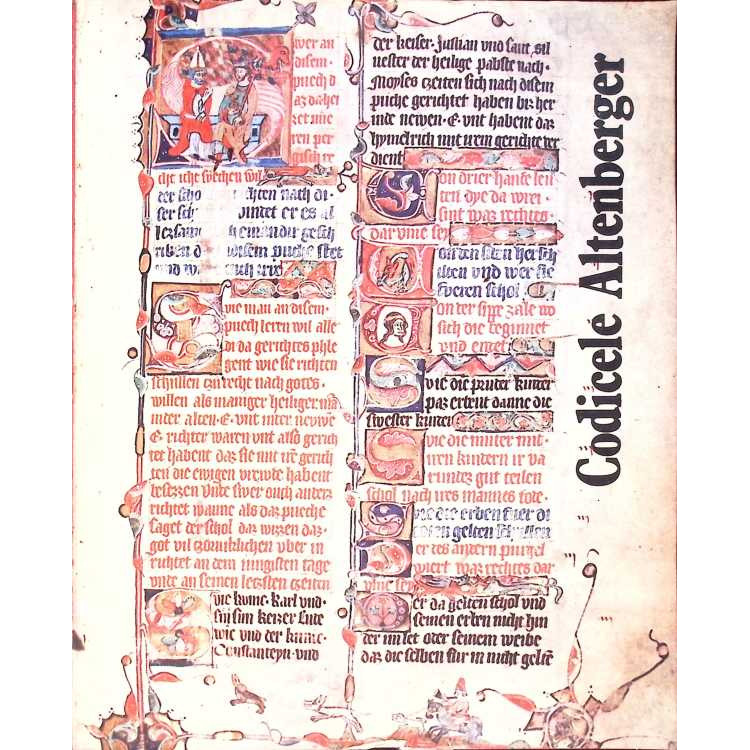 wer an
disem
puech d
az dahei
zet nue
ren per
gisch re
che icht
der scho chten nach di
ser sch vintet er es al
geschri
riben disem puche stet
vnd
wie man an disem
puech leren wil alle
di da gerichtes phle
gent wie sie richten
schullen czu recht nach gotes
willen als maniger heiliger man
inder alten E vnt inder neuwe
E richter waren vnt also gerich
tet habent daz sie mit irm gerich
ten die ewigen vreude habent
besezzen Vnde swer ouch anders
richtet wanne als daz pueche
saget der schol daz wizzen daz
got vil czorniklichen vber in
richtet an dem iungisten tage
vnde an seinen letzsten czeiten
wie kunic karl vnd
sein sun keizer Lute
wic vnd der kunic
Constanteyn vnd
der keiser Justian vnd sant sil
uester der heilige pabste nach
Moyses czeiten sich nach disem
puche gerichtet haben biz her
inde newen E vnt habent daz
hymelrich mit irem gerichte ver
dient
von drier hande leu
ten dye da vrei
sint waz rechtes
dar vme sey
von den siben hersch
ilten vnd wer sie
fueren schol
von der sippe zale wo
sich die beginnet
vnd entet
wie die pruder kinder
paz erbent danne die
swester kinder
wie die muter mit
iren kindern ir va
rundez gut teilen
schol nach ires mannes tode
wie die erben fuer di
toten gelten schullen
wer des andern purgel
wiert waz rechtes dar
vme sey
wer da gelten schol vnd
seinen erben nicht hin
der im let oder seinem weibe
daz die selben fur in nicht gelten
Codicele Altenberger